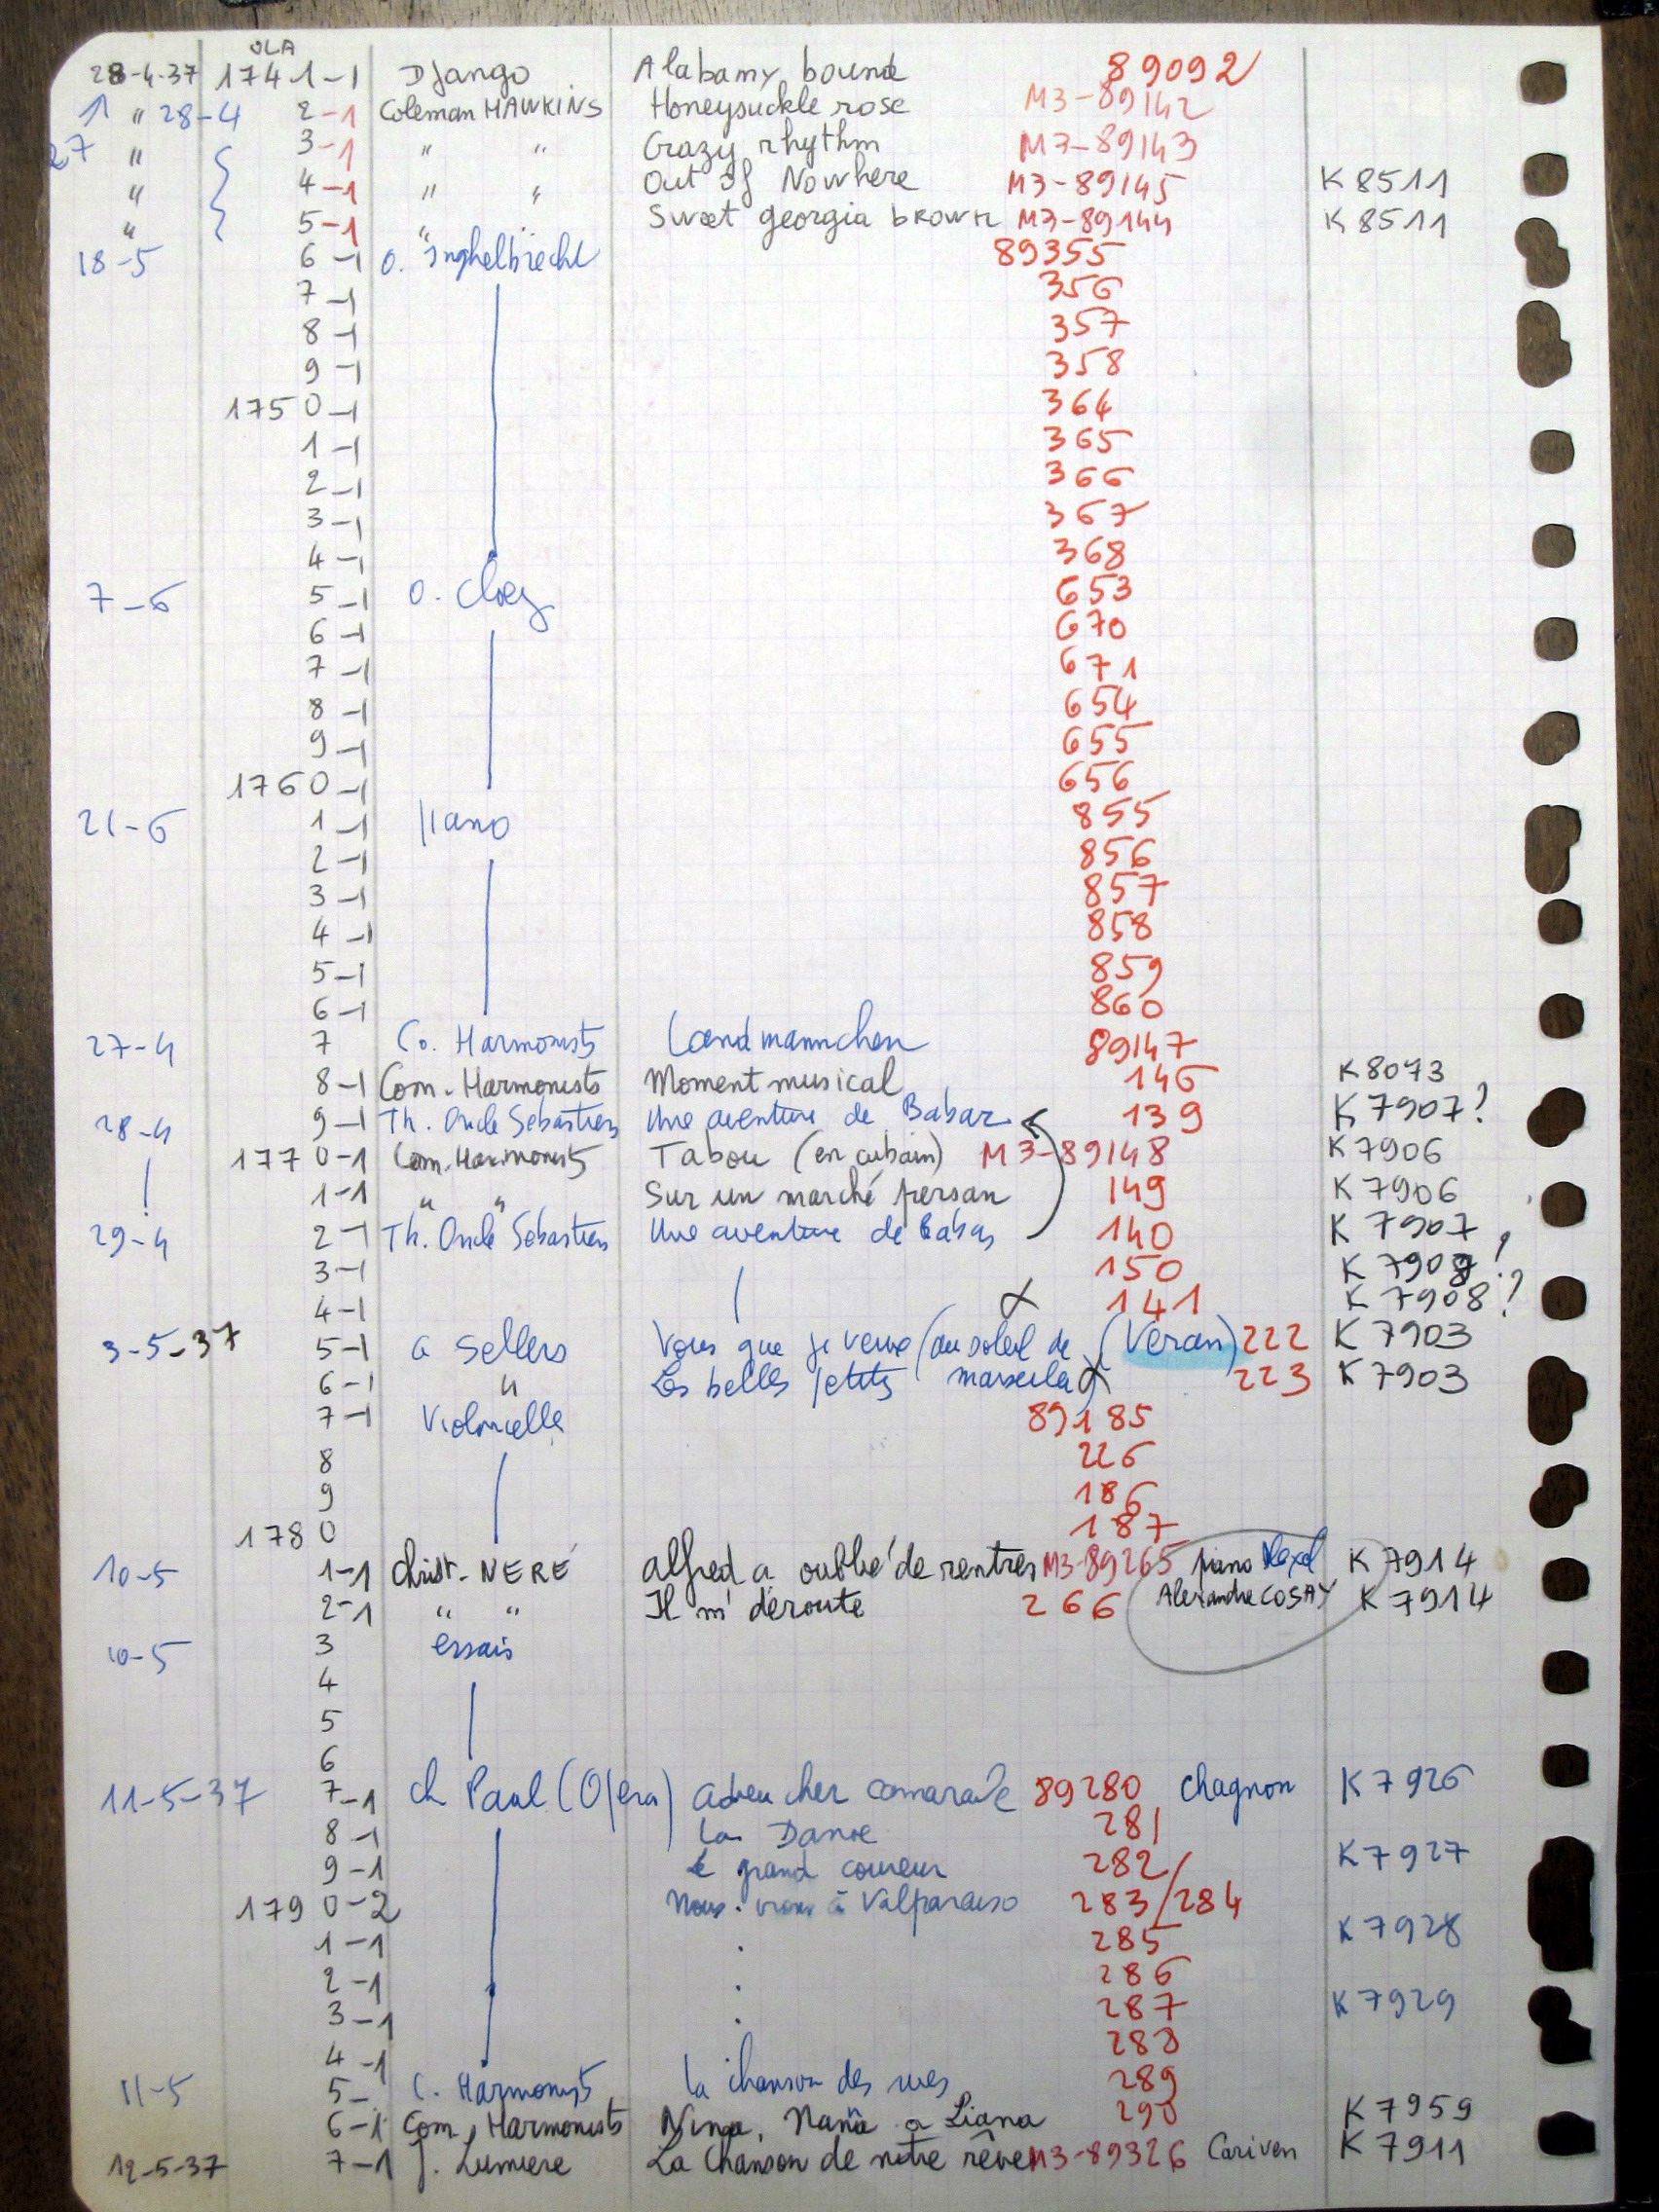 OLA
28-4-37 174 1-1 Django Alabamy bound 89092
1 " 28-4 2-1 Coleman HAWKINS Honeysuckle rose M3-89142
27 " 3-1 " " Crazy rhythm M7-89143
" 4-1 " " Out of Nowhere M3-89145 K 8511
" 5-1 " " Sweet georgia brown M3-89144 K 8511
18-5 6-1 O. Inghelbrecht 89355
7-1 356
8-1 357
9-1 358
175 0-1 364
1-1 365
2-1 366
3-1 367
4-1 368
7-6 5-1 O. Cloez 653
6-1 670
7-1 671
8-1 654
9-1 655
176 0-1 656
21-6 1-1 piano 855
2-1 856
3-1 857
4-1 858
5-1 859
6-1 860
27-4 7 Co. Harmonists Landmannchen 89147
8-1 Com. Harmonists Moment musical 146 K 8073
28-4 9-1 Th. Oncle Sébastien Une aventure de Babar 139 K 7907?
177 0-1 Com. Harmonists Tabou (en cubain) M3-89148 K 7906
1-1 " " Sur un marché persan 149 K 7906
29-4 2-1 Th. Oncle Sébastien Une aventure de Babar 140 K 7907
3-1 150 K 7908?
4-1 141 K 7908?
3-5-37 5-1 a Sellers Vous que je veux (au soleil de (Veran) 222 K 7903
6-1 " Les belles petits marseila 223 K 7903
7-1 Violoncelle 89185
8 226
9 186
178 0 187
10-5 1-1 Christ. NERÉ Alfred a oublié de rentrer M3-89265 piano K 7914
2-1 " " Il m'déroute 266 Alexandre COSAY K 7914
10-5 3 essais
4
5
6
11-5-37 7-1 ch Paul (Opera) Adieu cher camarade 89280 Chagnon K 7926
8-1 La Danse 281
9-1 Le grand coureur 282 K 7927
179 0-2 Nous irons à Valparaiso 283/284
1-1 285 K 7928
2-1 286
3-1 287 K 7929
4-1 288
11-5 5- C. Harmonists la chanson des rues 289
6-1 Com. Harmonists Ninga, Nana a Liana 290 K 7959
12-5-37 7-1 J. Lumiere La Chanson de notre rêve M3-89326 Cariven K 7911